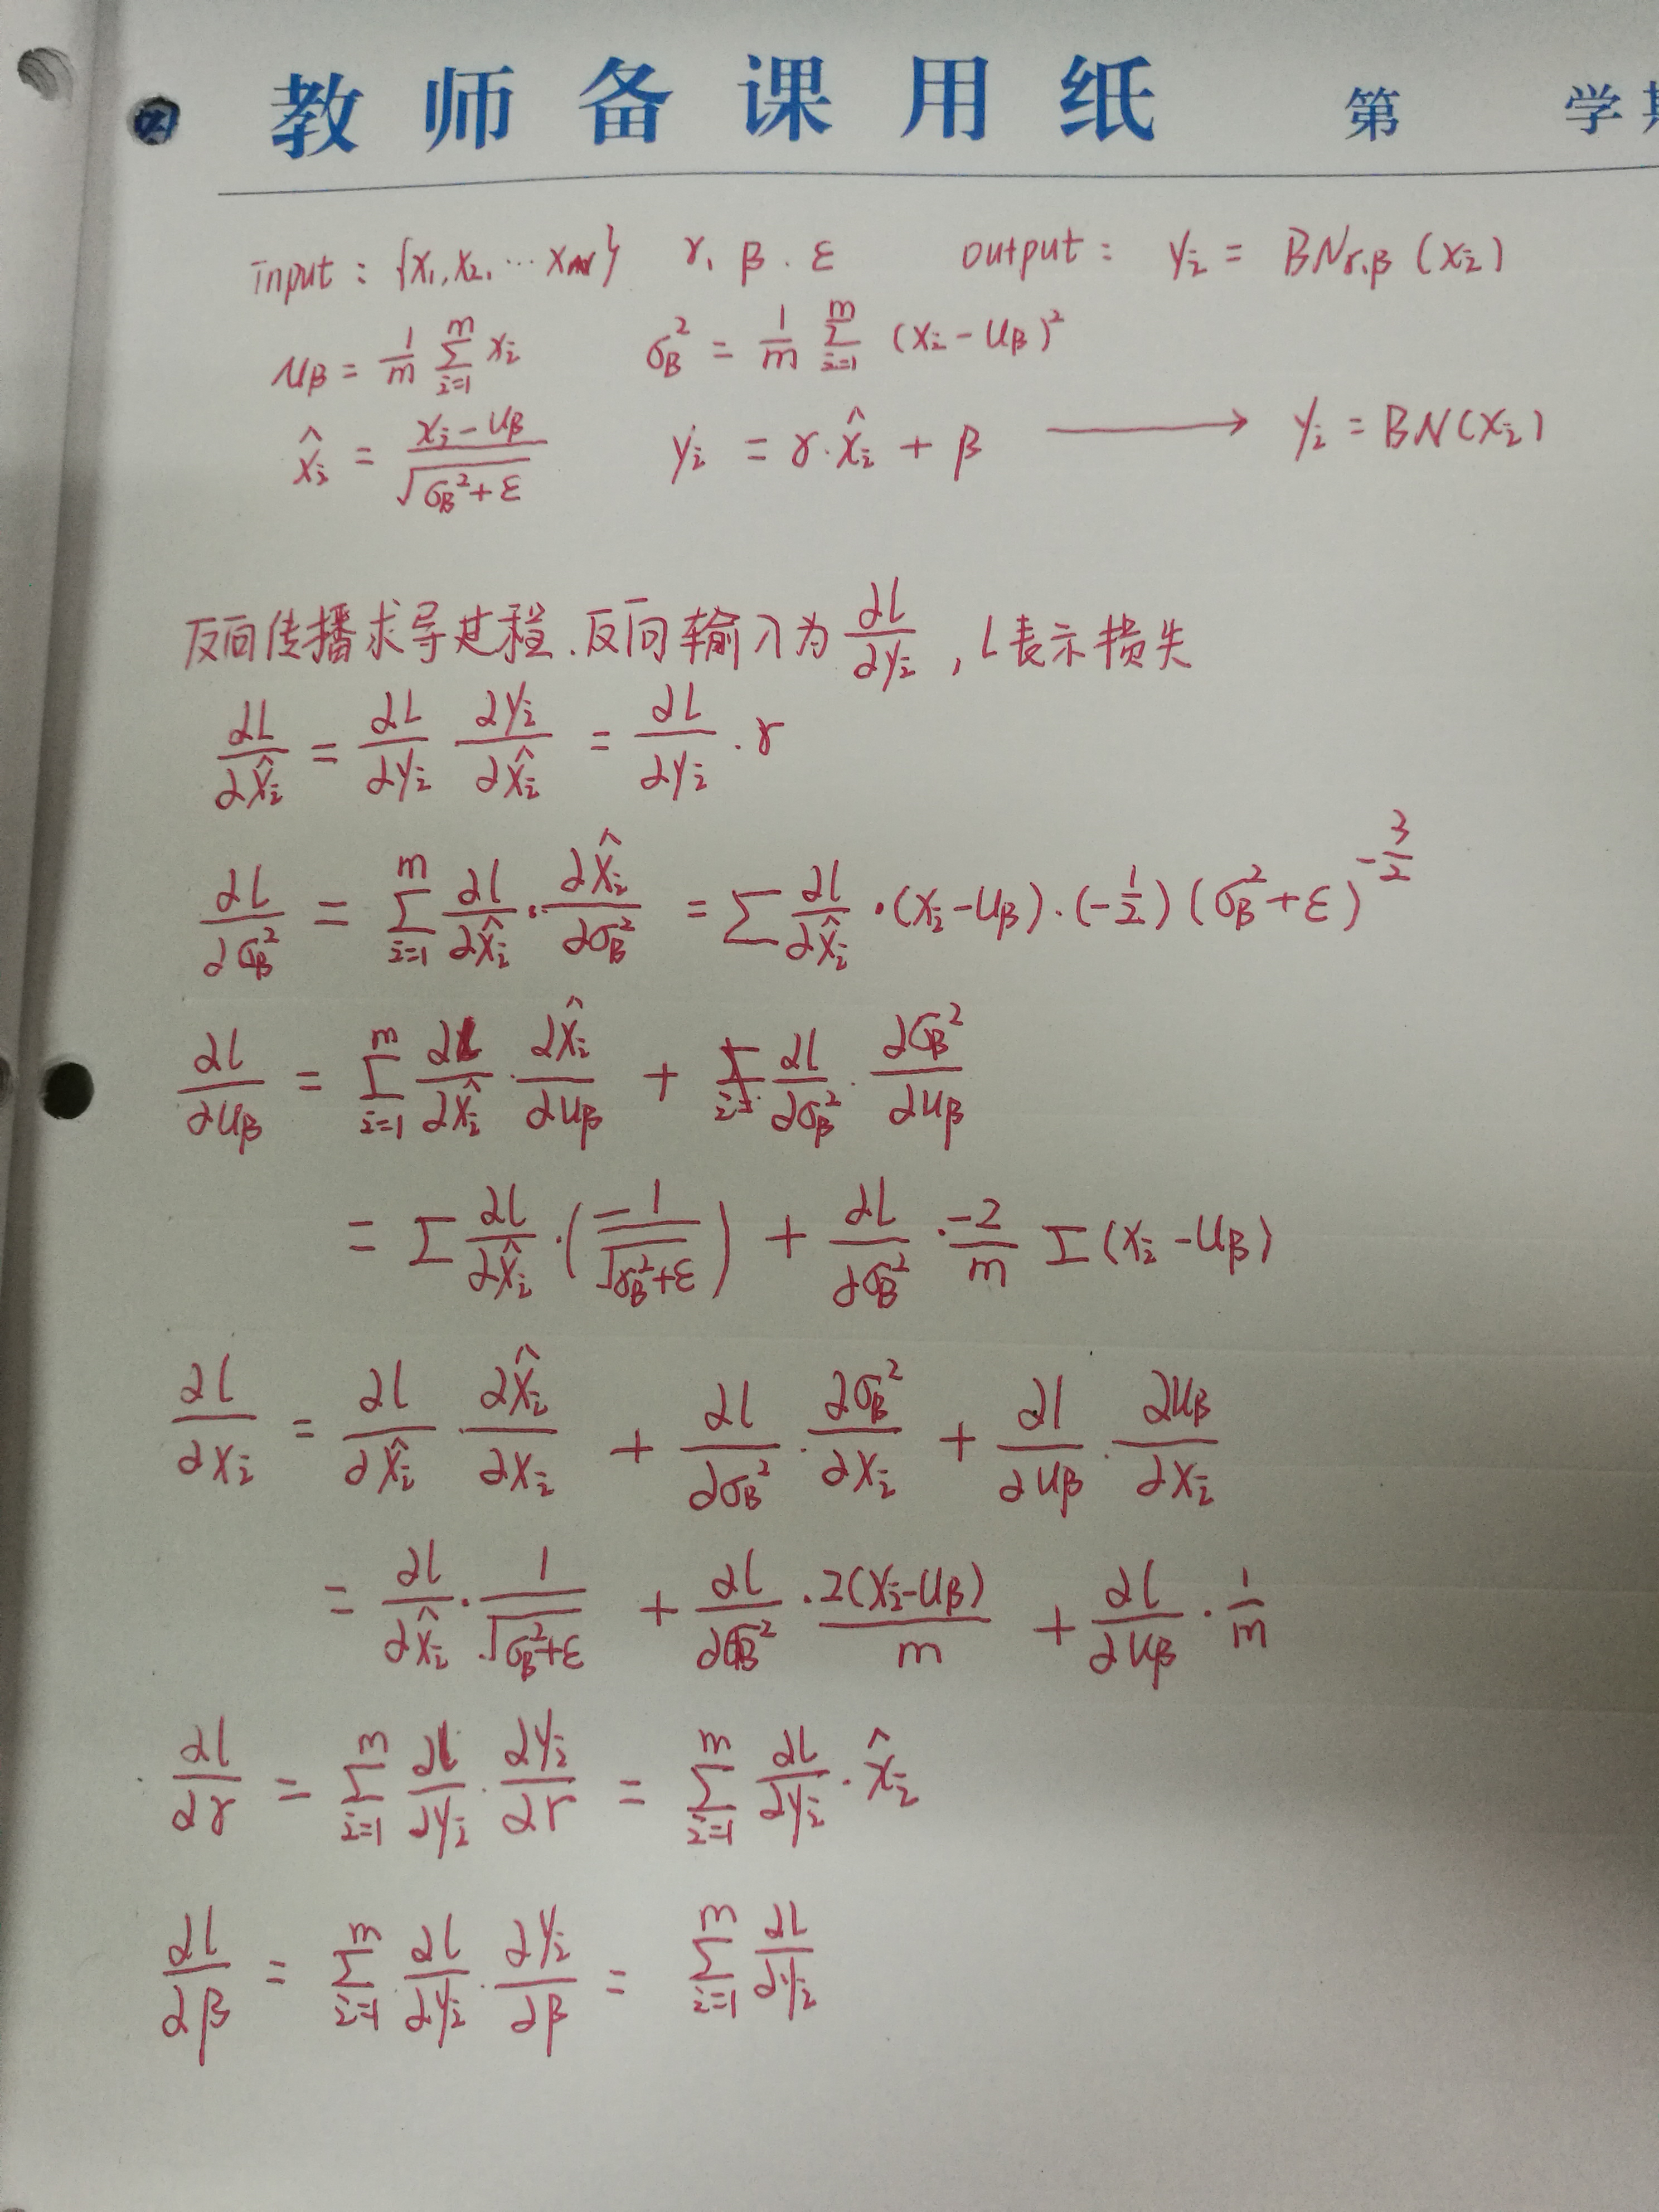 教师备课用纸 第 学
input : {x₁, x₂, ⋯ xₘ} γ, β, ε output : yᵢ = BNγ,β (xᵢ)
u_B = 1/m ∑_{i=1}^{m} xᵢ σ_B² = 1/m ∑_{i=1}^{m} (xᵢ − u_B)²
x̂ᵢ = (xᵢ − u_B)/√(σ_B² + ε) yᵢ = γ · x̂ᵢ + β ⟶ yᵢ = BN(xᵢ)
反向传播求导过程. 反向输入为 ∂l/∂yᵢ , l表示损失
∂L/∂x̂ᵢ = ∂L/∂yᵢ ∂yᵢ/∂x̂ᵢ = ∂L/∂yᵢ · γ
∂l/∂σ_B² = ∑_{i=1}^{m} ∂l/∂x̂ᵢ · ∂x̂ᵢ/∂σ_B² = ∑ ∂l/∂x̂ᵢ · (xᵢ − u_B) · (−1/2) (σ_B² + ε)^{−3/2}
∂l/∂u_B = ∑_{i=1}^{m} ∂l/∂x̂ᵢ · ∂x̂ᵢ/∂u_B + ∂l/∂σ_B² · ∂σ_B²/∂u_B
= ∑ ∂l/∂x̂ᵢ · (−1/√(σ_B² + ε)) + ∂l/∂σ_B² · −2/m ∑ (xᵢ − u_B)
∂l/∂xᵢ = ∂l/∂x̂ᵢ · ∂x̂ᵢ/∂xᵢ + ∂l/∂σ_B² · ∂σ_B²/∂xᵢ + ∂l/∂u_B · ∂u_B/∂xᵢ
= ∂l/∂x̂ᵢ · 1/√(σ_B² + ε) + ∂l/∂σ_B² · 2(xᵢ − u_B)/m + ∂l/∂u_B · 1/m
∂l/∂γ = ∑_{i=1}^{m} ∂l/∂yᵢ · ∂yᵢ/∂γ = ∑_{i=1}^{m} ∂l/∂yᵢ · x̂ᵢ
∂l/∂β = ∑_{i=1}^{m} ∂l/∂yᵢ · ∂yᵢ/∂β = ∑_{i=1}^{m} ∂l/∂yᵢ